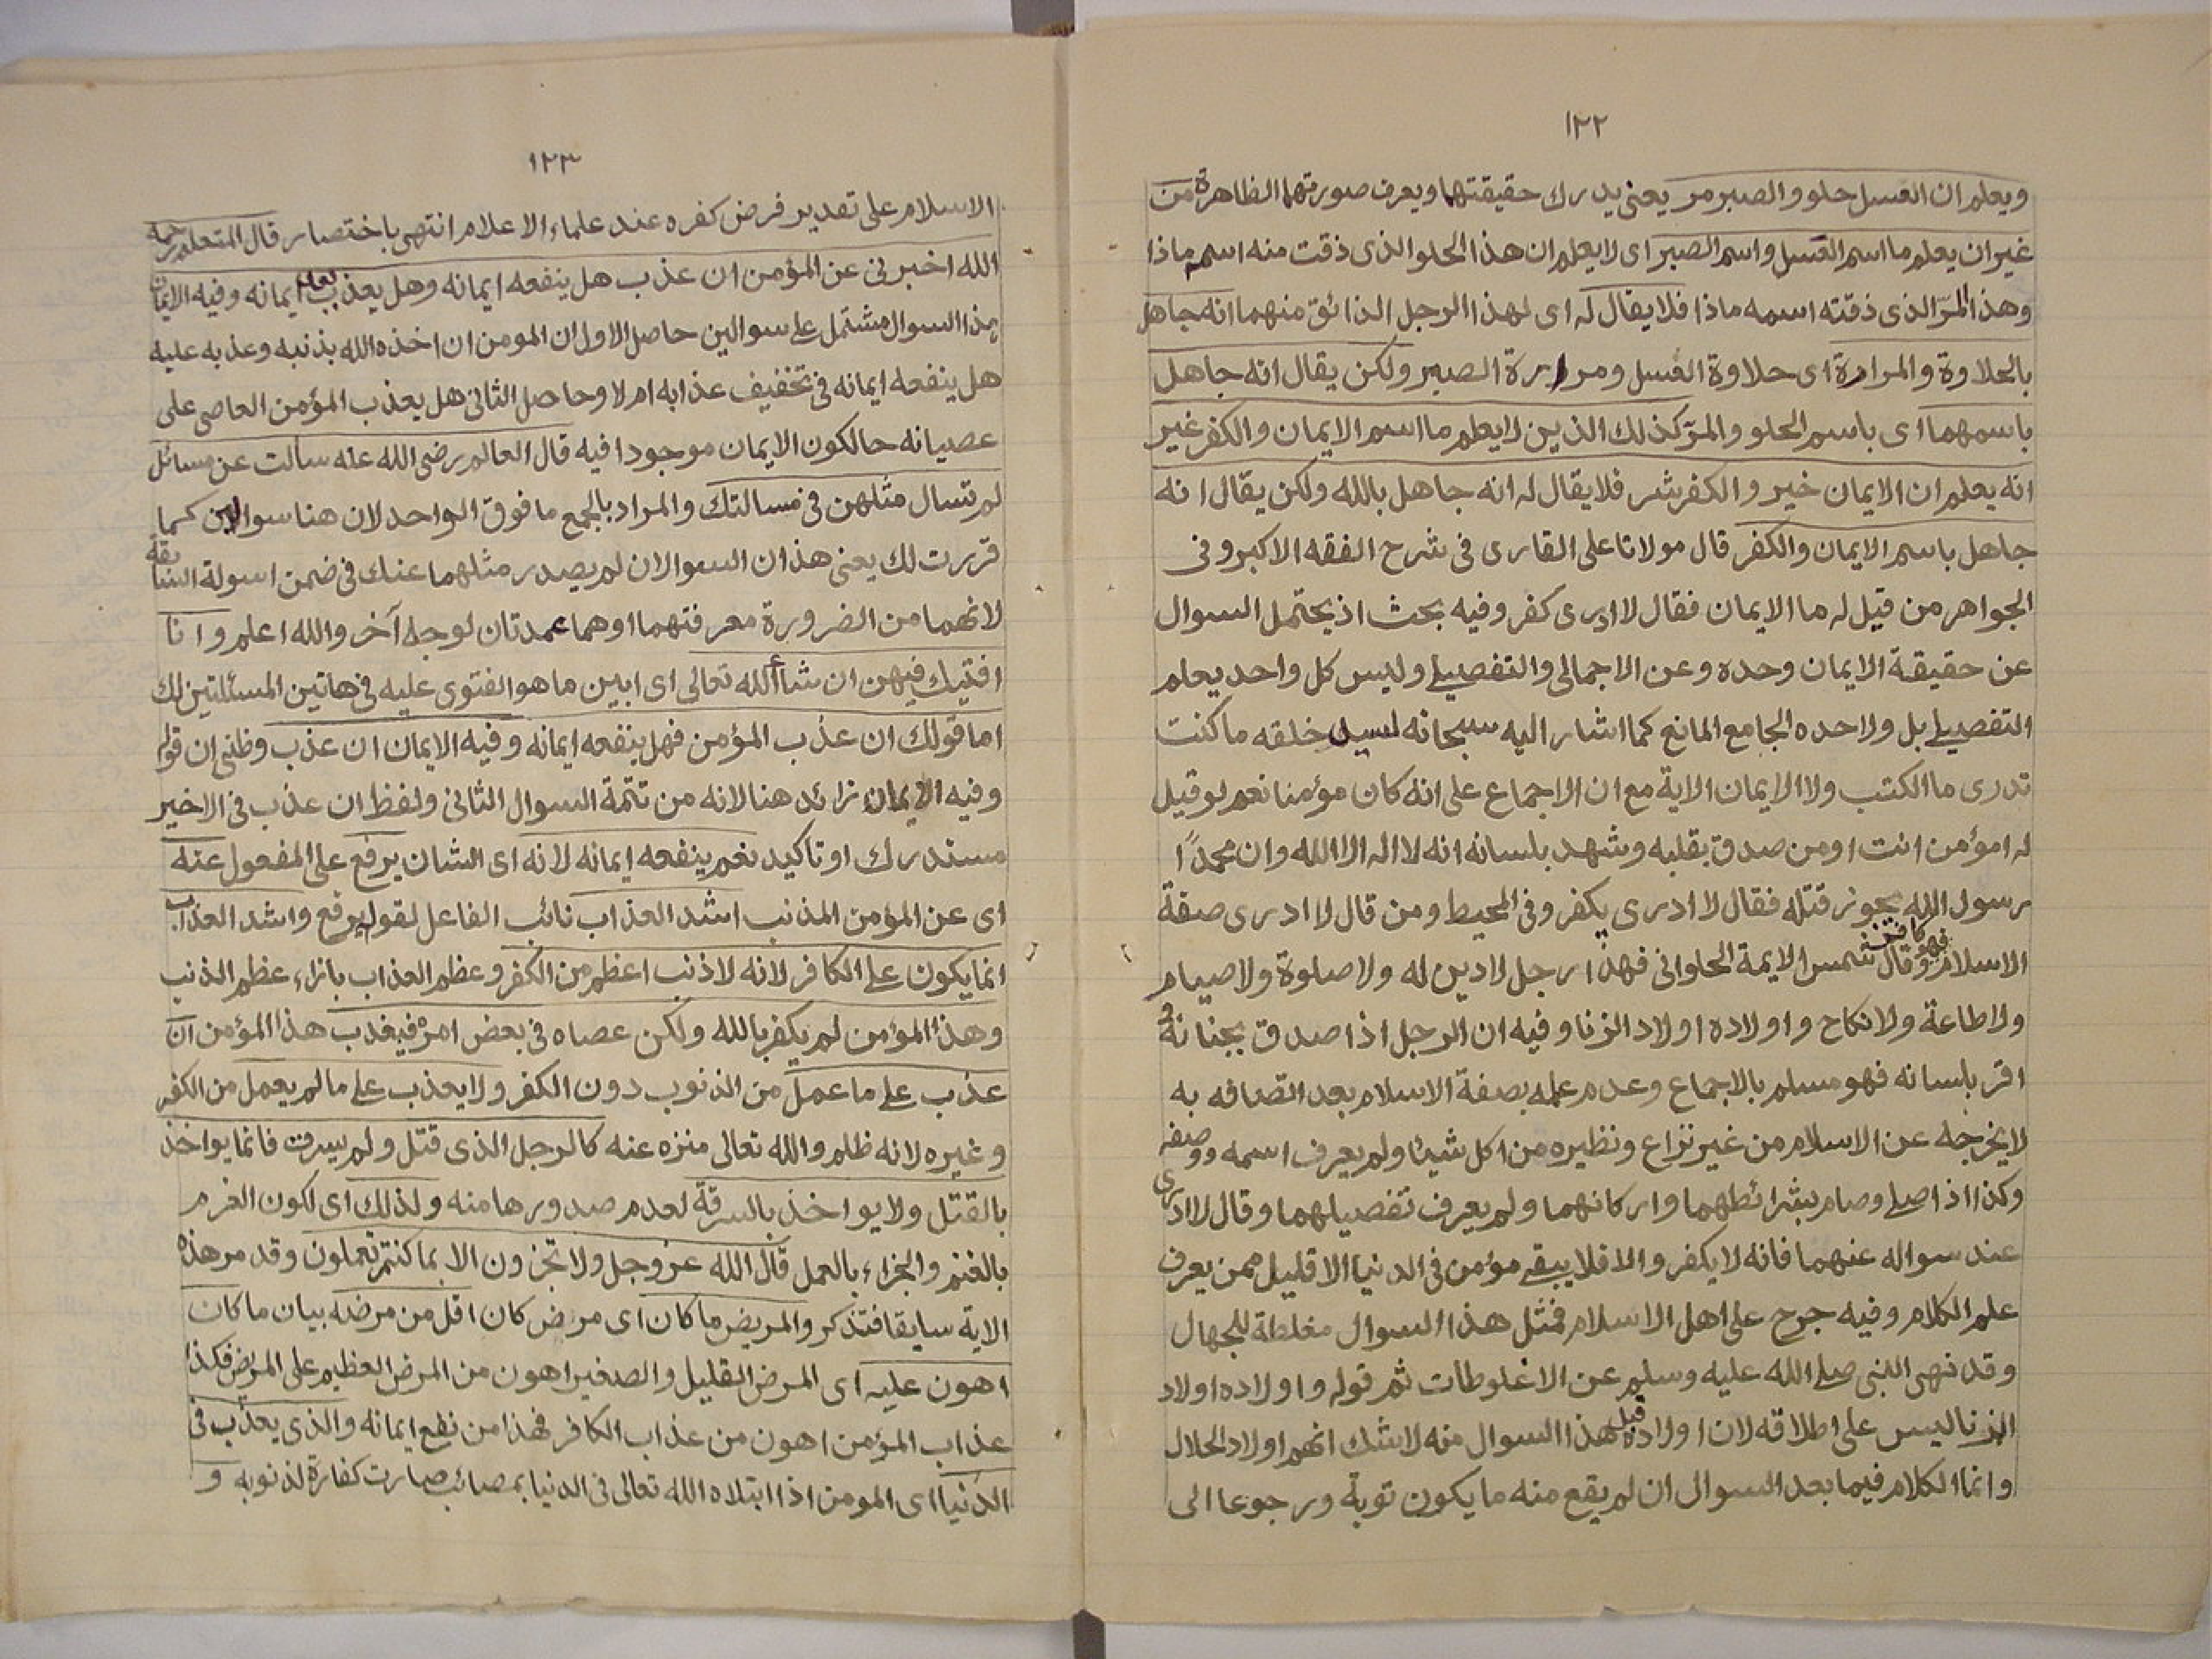 ١٢٢
ويعلم ان العسل حلو والصبر مر يعنى يدرك حقيقتهما ويعرف صورتهما الظاهرة من
غير ان يعلم ما اسم العسل واسم الصبر اى لا يعلم ان هذا الحلو الذى ذقت منه اسمه ماذا
وهذا المرّ الذى ذقته اسمه ماذا فلا يقال له اى لهذا الرجل الذائق منهما انه جاهل
بالحلاوة والمرارة اى حلاوة العسل ومرارة الصبر ولكن يقال انه جاهل
باسمهما اى باسم الحلو والمرّ كذلك الذين لا يعلم ما اسم الايمان والكفر غير
انه يعلم ان الايمان خير والكفر شر فلا يقال له انه جاهل بالله ولكن يقال انه
جاهل باسم الايمان والكفر قال مولانا على القارى فى شرح الفقه الاكبر وفى
الجواهر من قيل له ما الايمان فقال لا ادرى كفر وفيه بحث اذ يحتمل السوال
عن حقيقة الايمان وحده وعن الاجمالى والتفصيلى وليس كل واحد يعلم
التفصيلى بل ولا حده الجامع المانع كما اشار اليه سبحانه لسيد خلقه ما كنت
تدرى ما الكتب ولا الايمان الاية مع ان الاجماع على انه كان مؤمنا نعم لو قيل
له امؤمن انت او من صدق بقلبه وشهد بلسانه انه لا اله الا الله وان محمدًا
رسول الله يجوز قتله فقال لا ادرى يكفر وفى المحيط ومن قال لا ادرى صفة
الاسلام فهو كافر وقال شمس الايمة الحلوانى فهذا رجل لا دين له ولا صلوة ولا صيام
ولا طاعة ولا نكاح واولاده اولاد الزنا وفيه ان الرجل اذا صدق بجنانه و
اقر بلسانه فهو مسلم بالاجماع وعدم علمه بصفة الاسلام بعد اتصافه به
لا يخرجه عن الاسلام من غير نزاع ونظيره من اكل شيئا ولم يعرف اسمه ووصفه
وكذا اذا صلى وصام بشرائطهما واركانهما ولم يعرف تفصيلهما وقال لا ادرى
عند سواله عنهما فانه لا يكفر والا فلا يبقى مؤمن فى الدنيا الا قليل ممن يعرف
علم الكلام وفيه جرح على اهل الاسلام فمثل هذا السوال مغلطة للجهال
وقد نهى النبى صلى الله عليه وسلم عن الاغلوطات ثم قوله واولاده اولاد
الزنا ليس على اطلاقه لان اولاده قبل هذا السوال منه لا شك انهم اولاد الحلال
وانما الكلام فيما بعد السوال ان لم يقع منه ما يكون توبة ورجوعا الى
١٢٣
الاسلام على تقدير فرض كفره عند علماء الاعلام انتهى باختصار قال المتعلم رحمه
الله اخبرنى عن المؤمن ان عذب هل ينفعه ايمانه وهل يعذب بعلم ايمانه وفيه الايمان
هذا السوال مشتمل على سوالين حاصل الاول ان المومن ان اخذه الله بذنبه وعذبه عليه
هل ينفعه ايمانه فى تخفيف عذابه ام لا وحاصل الثانى هل يعذب المؤمن العاصى على
عصيانه حالكون الايمان موجودا فيه قال العالم رضى الله عنه سألت عن مسائل
لم تسال مثلهن فى مسالتك والمراد بالجمع ما فوق الواحد لان هنا سوالين كما
قررت لك يعنى هذان السوالان لم يصدر مثلهما عنك فى ضمن اسولة السابقة
لانهما من الضرورة معرفتهما او هما عمدتان لوجه آخر والله اعلم وانا
افتيك فيهن ان شاء الله تعالى اى ابين ما هو الفتوى عليه فى هاتين المسئلتين لك
اما قولك ان عذب المؤمن فهل ينفعه ايمانه وفيه الايمان ان عذب وظنى ان قوله
وفيه الايمان زائد هنا لانه من تتمة السوال الثانى ولفظ ان عذب فى الاخير
مستدرك او تاكيد نعم ينفعه ايمانه لانه اى الشان يرفع على المفعول عنه
اى عن المؤمن المذنب اشد العذاب نائب الفاعل لقوله يرفع واشد العذاب
انما يكون على الكافر لانه لا ذنب اعظم من الكفر وعظم العذاب بازاء عظم الذنب
وهذا المؤمن لم يكفر بالله ولكن عصاه فى بعض امره فيعذب هذا المؤمن ان
عذب على ما عمل من الذنوب دون الكفر ولا يعذب على ما لم يعمل من الكفر
وغيره لانه ظلم والله تعالى منزه عنه كالرجل الذى قتل ولم يسرق فانما يواخذ
بالقتل ولا يواخذ بالسرقة لعدم صدورها منه ولذلك اى لكون الغرم
بالغنم والجزاء بالعمل قال الله عز وجل ولا تجزون الا بما كنتم تعملون وقد مر هذه
الاية سابقا فتذكر والمريض ما كان اى مرض كان اقل من مرضه بيان ما كان
اهون عليه اى المرض القليل والصغير اهون من المرض العظيم على المريض فكذا
عذاب المؤمن اهون من عذاب الكافر فهذا من نفع ايمانه والذى يعذب فى
الدنيا اى المومن اذا ابتلاه الله تعالى فى الدنيا بمصائب صارت كفارة لذنوبه و